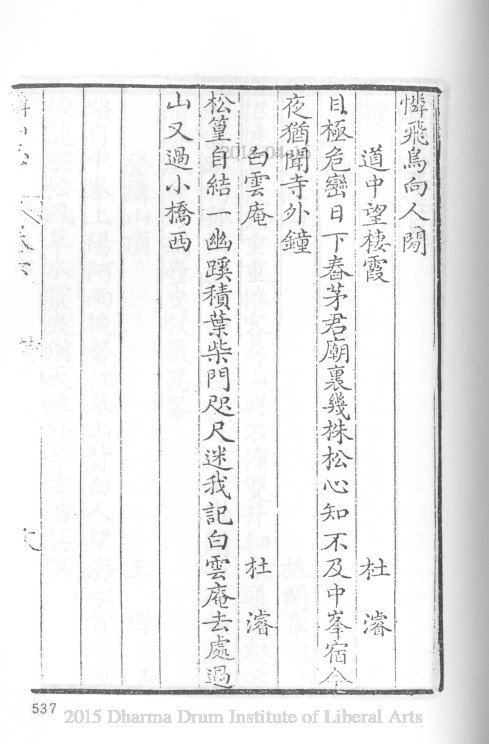 憐飛鳥向人閒
道中望棲霞 杜濬
目極危巒日下舂茅君廟裏幾株松心知不及中峯宿今
夜猶聞寺外鐘
白雲庵 杜濬
松篁自結一幽蹊積葉柴門咫尺迷我記白雲庵去處過
山又過小橋西
537
2015 Dharma Drum Institute of Liberal Arts